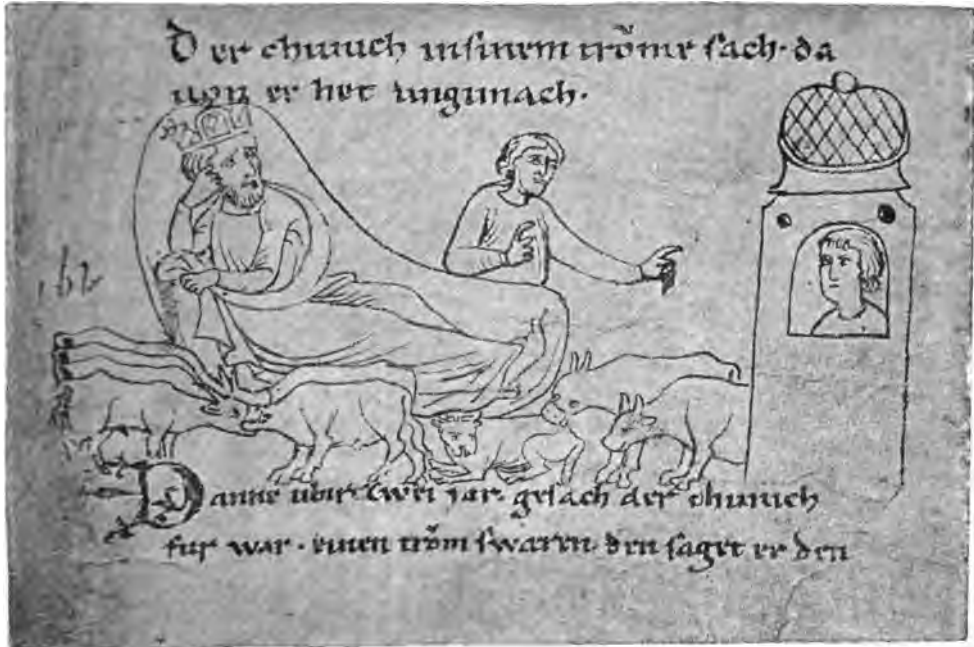 D er chunich insinem trǒme sach· da
uon er het ungimach·
Danne ubir zwei iar· gesach der chunich
fur war· einen trǒm swaren· den saget er den